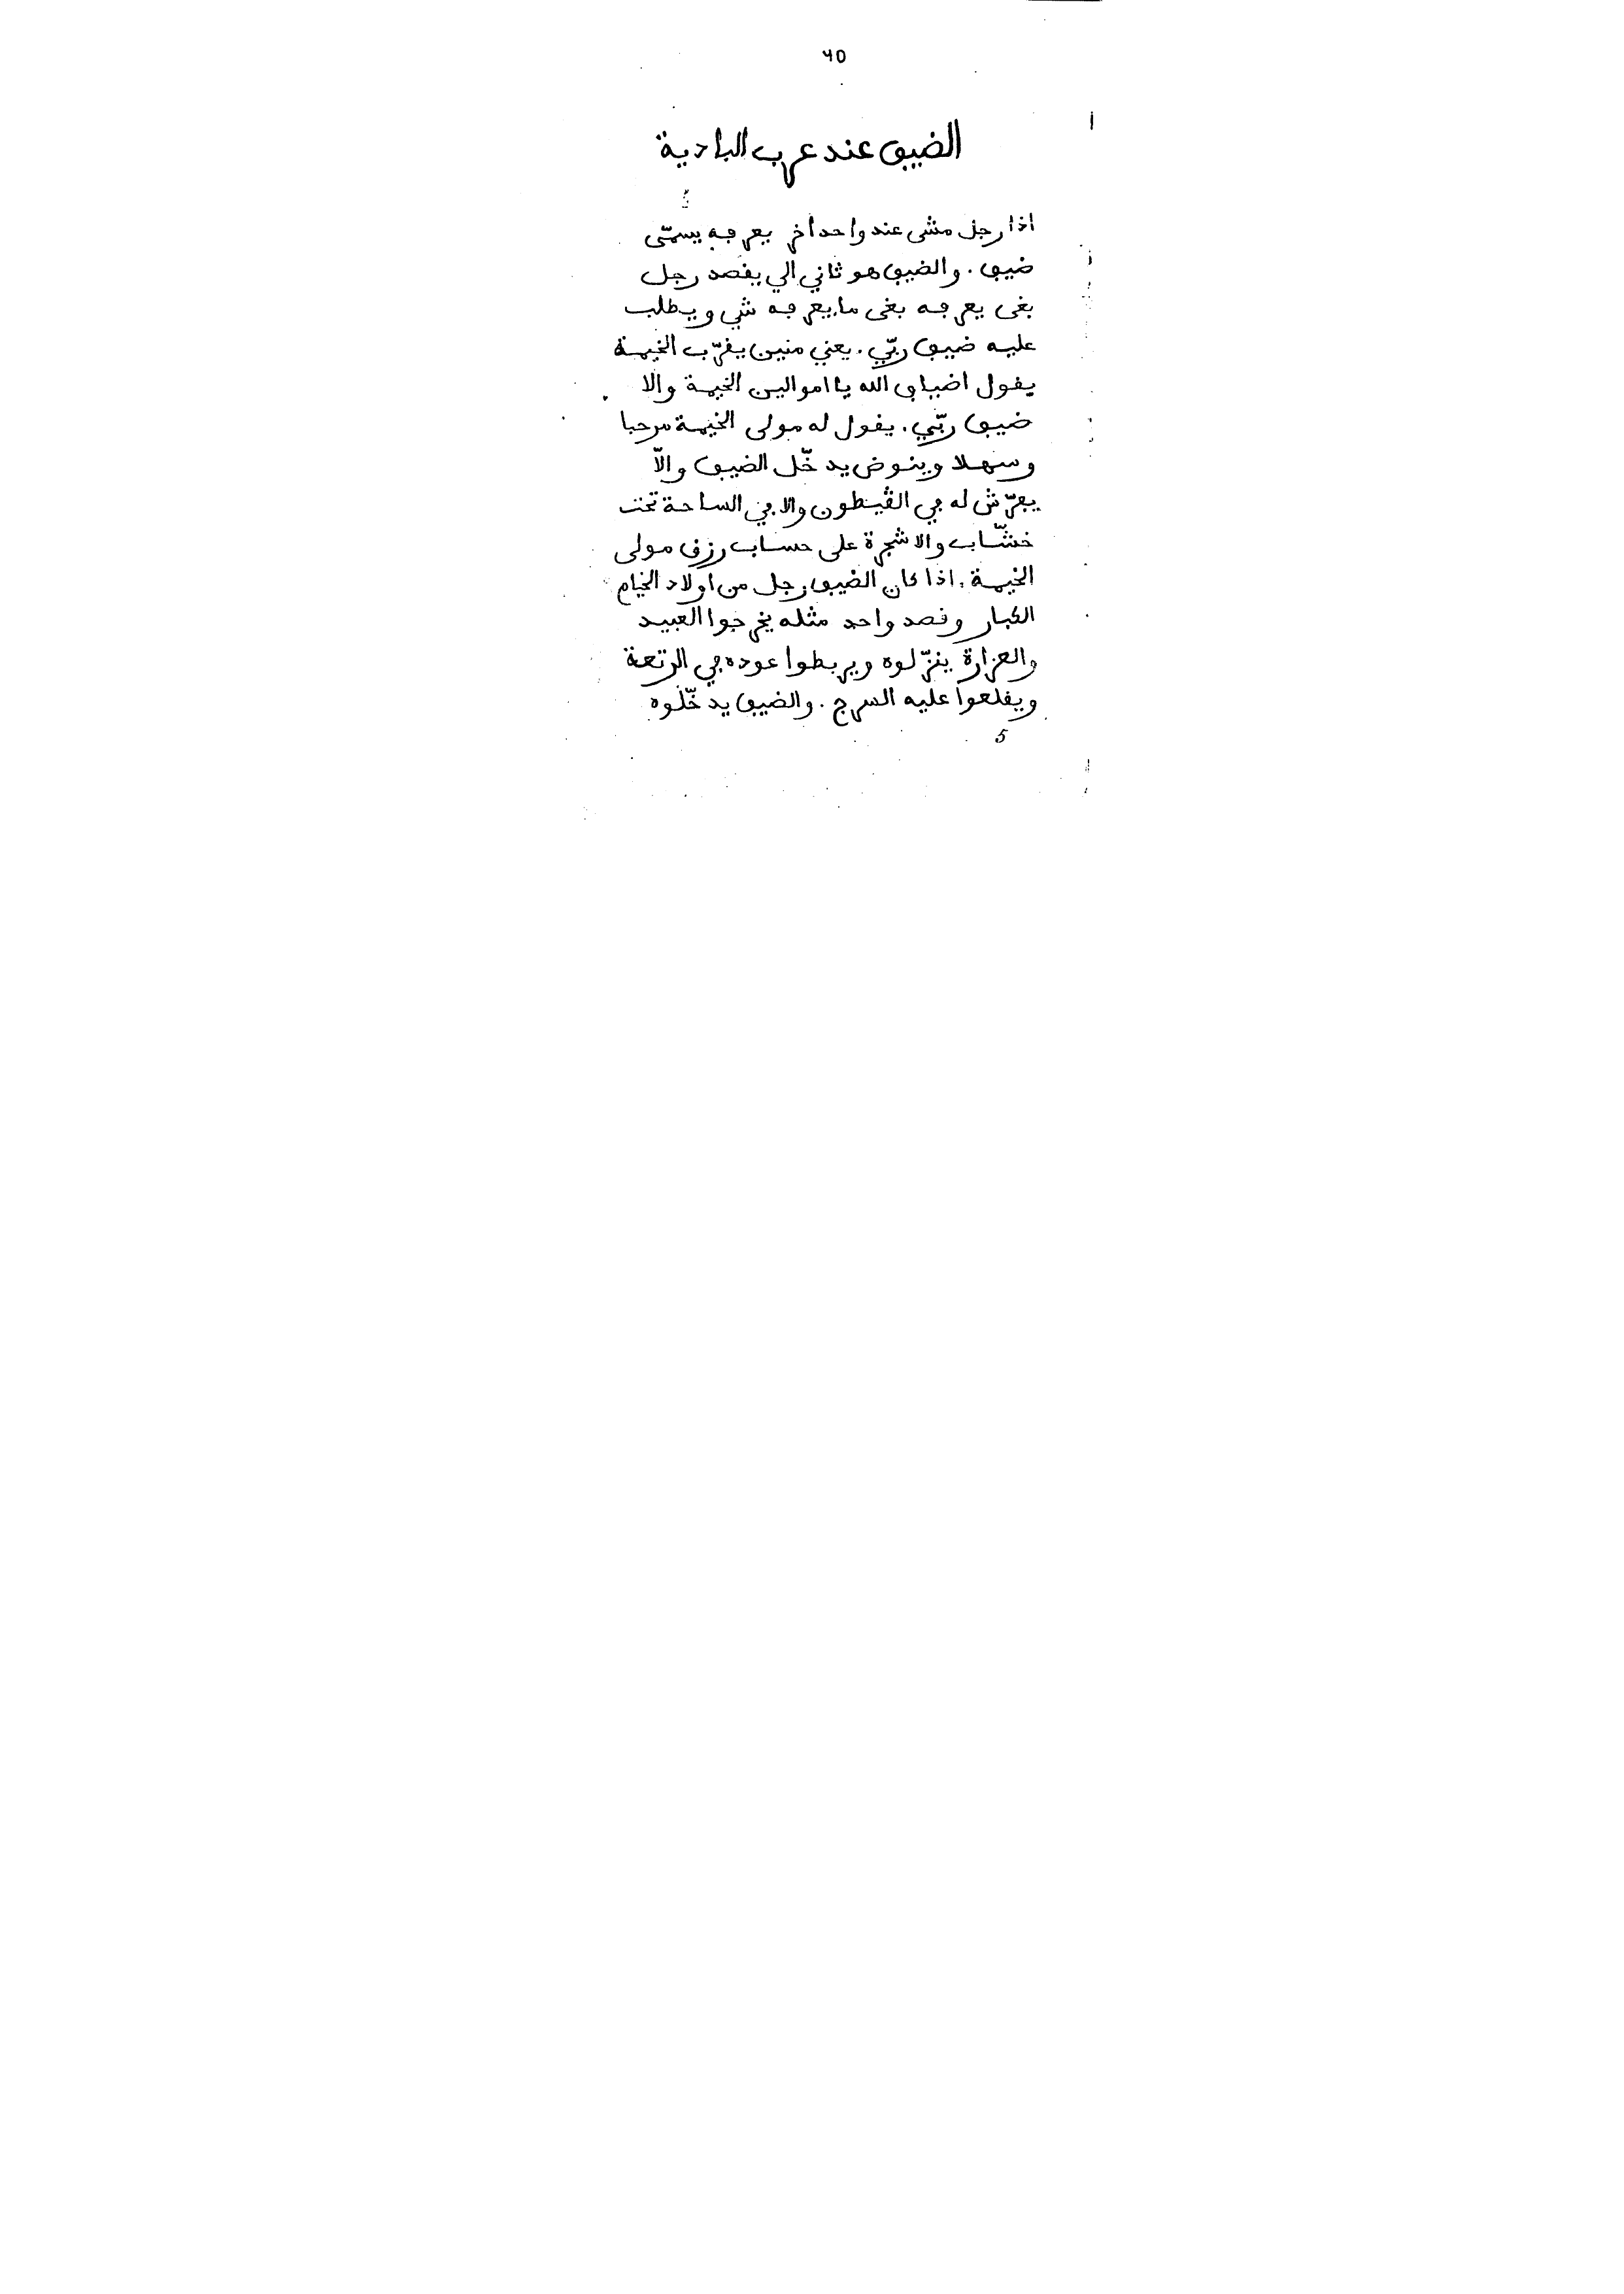 ٦٥
الضيف عند عرب البادية
اذا رجل مشى عند واحد آخر يعرفه يسمّى
ضيف. والضيف هو ثاني الي يقصد رجل
بغى يعرفه بغى ما يعرفه شي ويطلب
عليه ضيف ربّي. يعني منين يقرّب الخيمة
يقول اضياف الله يا اموالين الخيمة والا
ضيف ربّي. يقول له مولى الخيمة مرحبا
وسهلا وينوض يدخّل الضيف والّا
يفرّش له في القيطون والا في الساحة تحت
خشّاب والا شجرة على حساب رزق مولى
الخيمة. اذا كان الضيف رجل من اولاد الخيام
الكبار وقصد واحد مثله يخرجوا العبيد
والعزارة ينزّلوه ويربطوا عوده في الرتعة
ويقلعوا عليه السرج. والضيف يدخّلوه
5